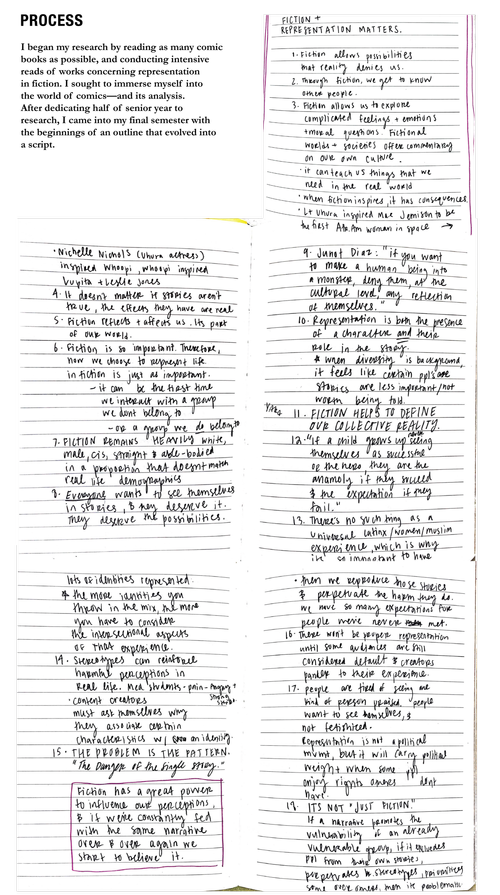 PROCESS
I began my research by reading as many comic
books as possible, and conducting intensive
reads of works concerning representation
in fiction. I sought to immerse myself into
the world of comics—and its analysis.
After dedicating half of senior year to
research, I came into my final semester with
the beginnings of an outline that evolved into
a script.
FICTION +
REPRESENTATION MATTERS.
1. Fiction allows possibilities
that reality denies us.
2. Through fiction, we get to know
other people.
3. Fiction allows us to explore
complicated feelings + emotions
+ moral questions. Fictional
worlds + societies offer commentary
on our own culture.
• it can teach us things that we
need in the real world
• when fiction inspires, it has consequences.
• Lt Uhura inspired Mae Jemison to be
the first Afr. Am woman in space →
• Nichelle Nichols (Uhura actress)
inspired Whoopi, whoopi inspired
Lupita + Leslie Jones
4. It doesn't matter if stories aren't
true, the effects they have are real
5. Fiction reflects + affects us. Its part
of our world.
6. Fiction is so important. Therefore,
how we choose to represent life
in fiction is just as important.
– it can be the first time
we interact with a group
we dont belong to
– or a group we do belong to
7. FICTION REMAINS HEAVILY white,
male, cis, straight & able-bodied
in a proportion that doesnt match
real life demographics
8. Everyone wants to see themselves
in stories, & they deserve it.
They deserve the possibilities.
9. Junot Diaz: "if you want
to make a human being into
a monster, deny them, at the
cultural level, any reflection
of themselves."
10. Representation is both the presence
of a character and their
role in the story.
* when diversity is background
it feels like certain ppls
stories are less important/not
worth being told.
11. FICTION HELPS TO DEFINE
OUR COLLECTIVE REALITY.
12. "If a child grows up never seeing
themselves as successful
or the hero, they are the
anamoly if they succeed
& the expectation if they
fail."
13. There's no such thing as a
universal latinx/women/muslim
experience, which is why
it's so important to have
lots of identities represented.
* the more identities you
throw in the mix, the more
you have to consider
the intersectional aspects
of that experience.
14. Stereotypes can reinforce
harmful perceptions in
real life. Med students - pain -
• content creators
must ask themselves why
they associate certain
characteristics w/ an identity
15. THE PROBLEM IS THE PATTERN.
"The Danger of the Single Story."
Fiction has a great power
to influence our perceptions,
& if we're constantly fed
with the same narrative
over & over again we
start to believe it.
• then we reproduce those stories
& perpetuate the harm they do.
we have so many expectations for
people we've never met.
16. There wont be proper representation
until some audiences are still
considered default & creators
pander to their experience.
17. people are tired of seeing one
kind of person praised. people
want to see themselves, &
not fetishized.
Representation is not a political
mvmt, but it will carry political
weight when some ppl
enjoy rights others dont
have.
18. ITS NOT "JUST FICTION."
If a narrative promotes the
vulnerability of an already
vulnerable group, if it excludes
ppl from their own stories,
perpetuates stereotypes,
some over others, then its problematic